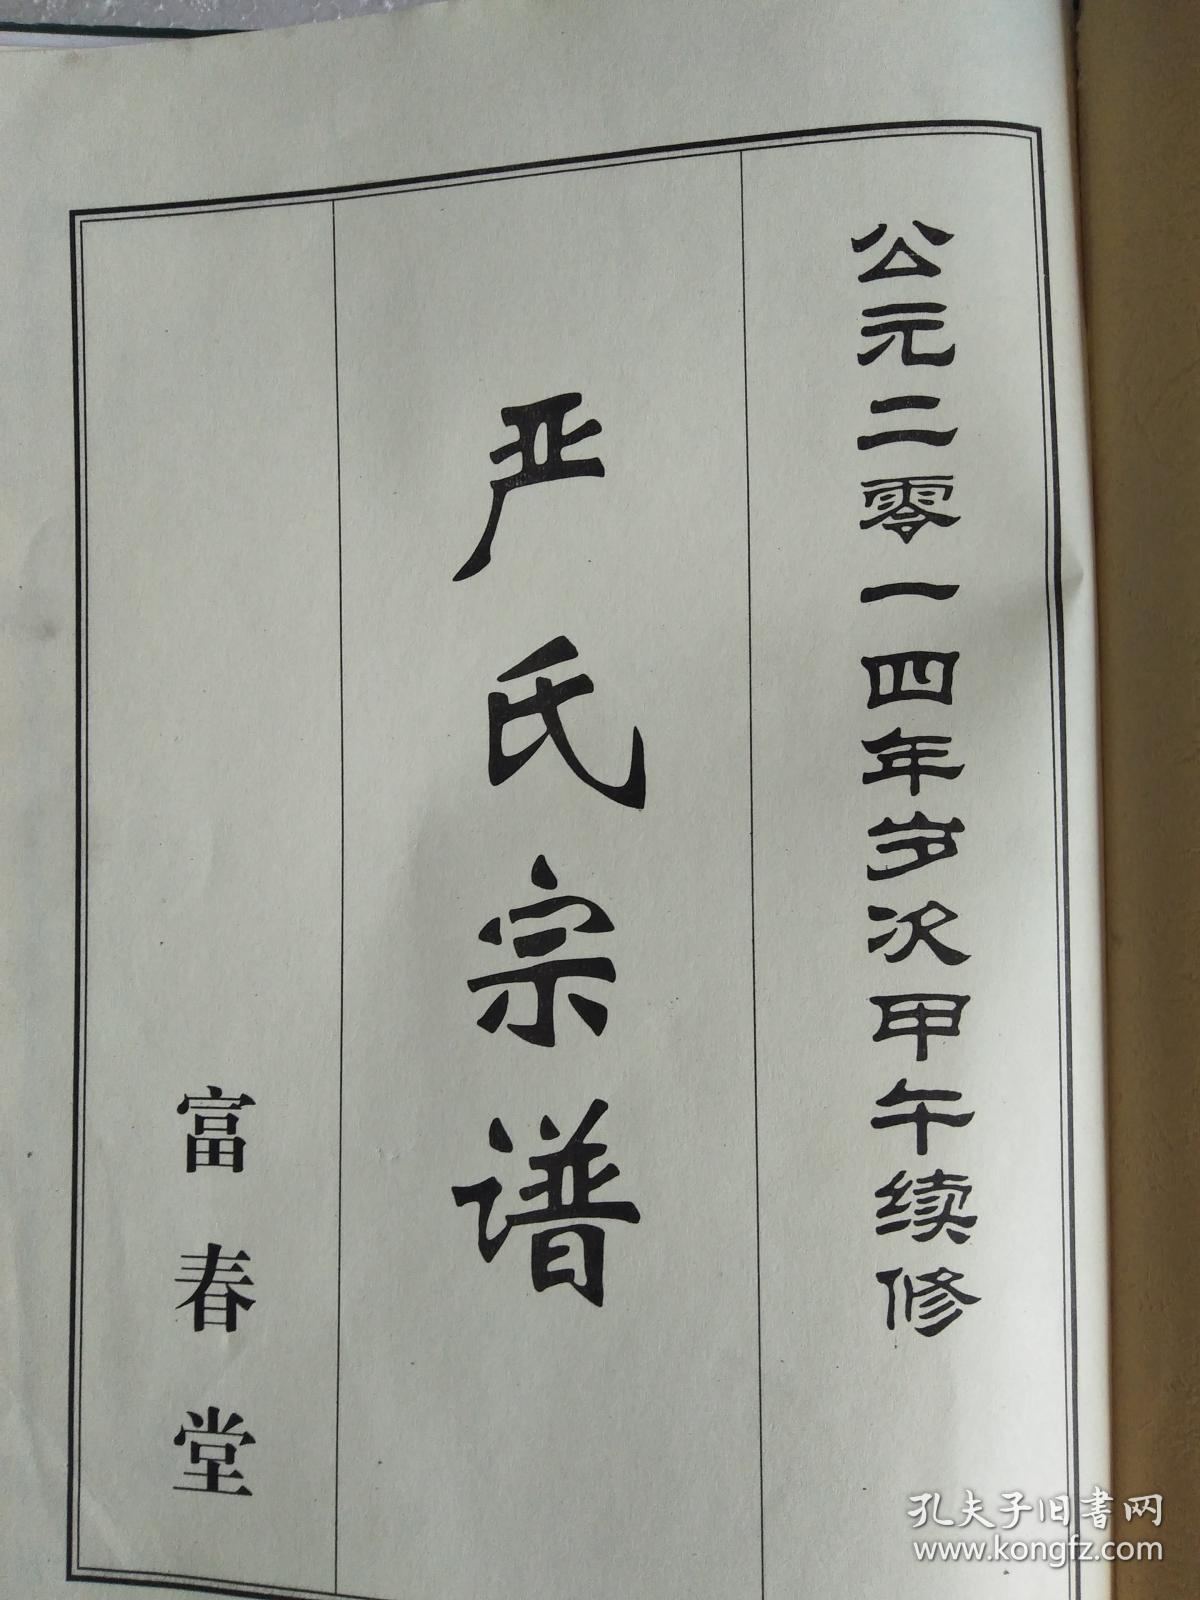 公元二零一四年岁次甲午续修
严氏宗谱
富春堂
孔夫子旧書网
www.kongfz.com